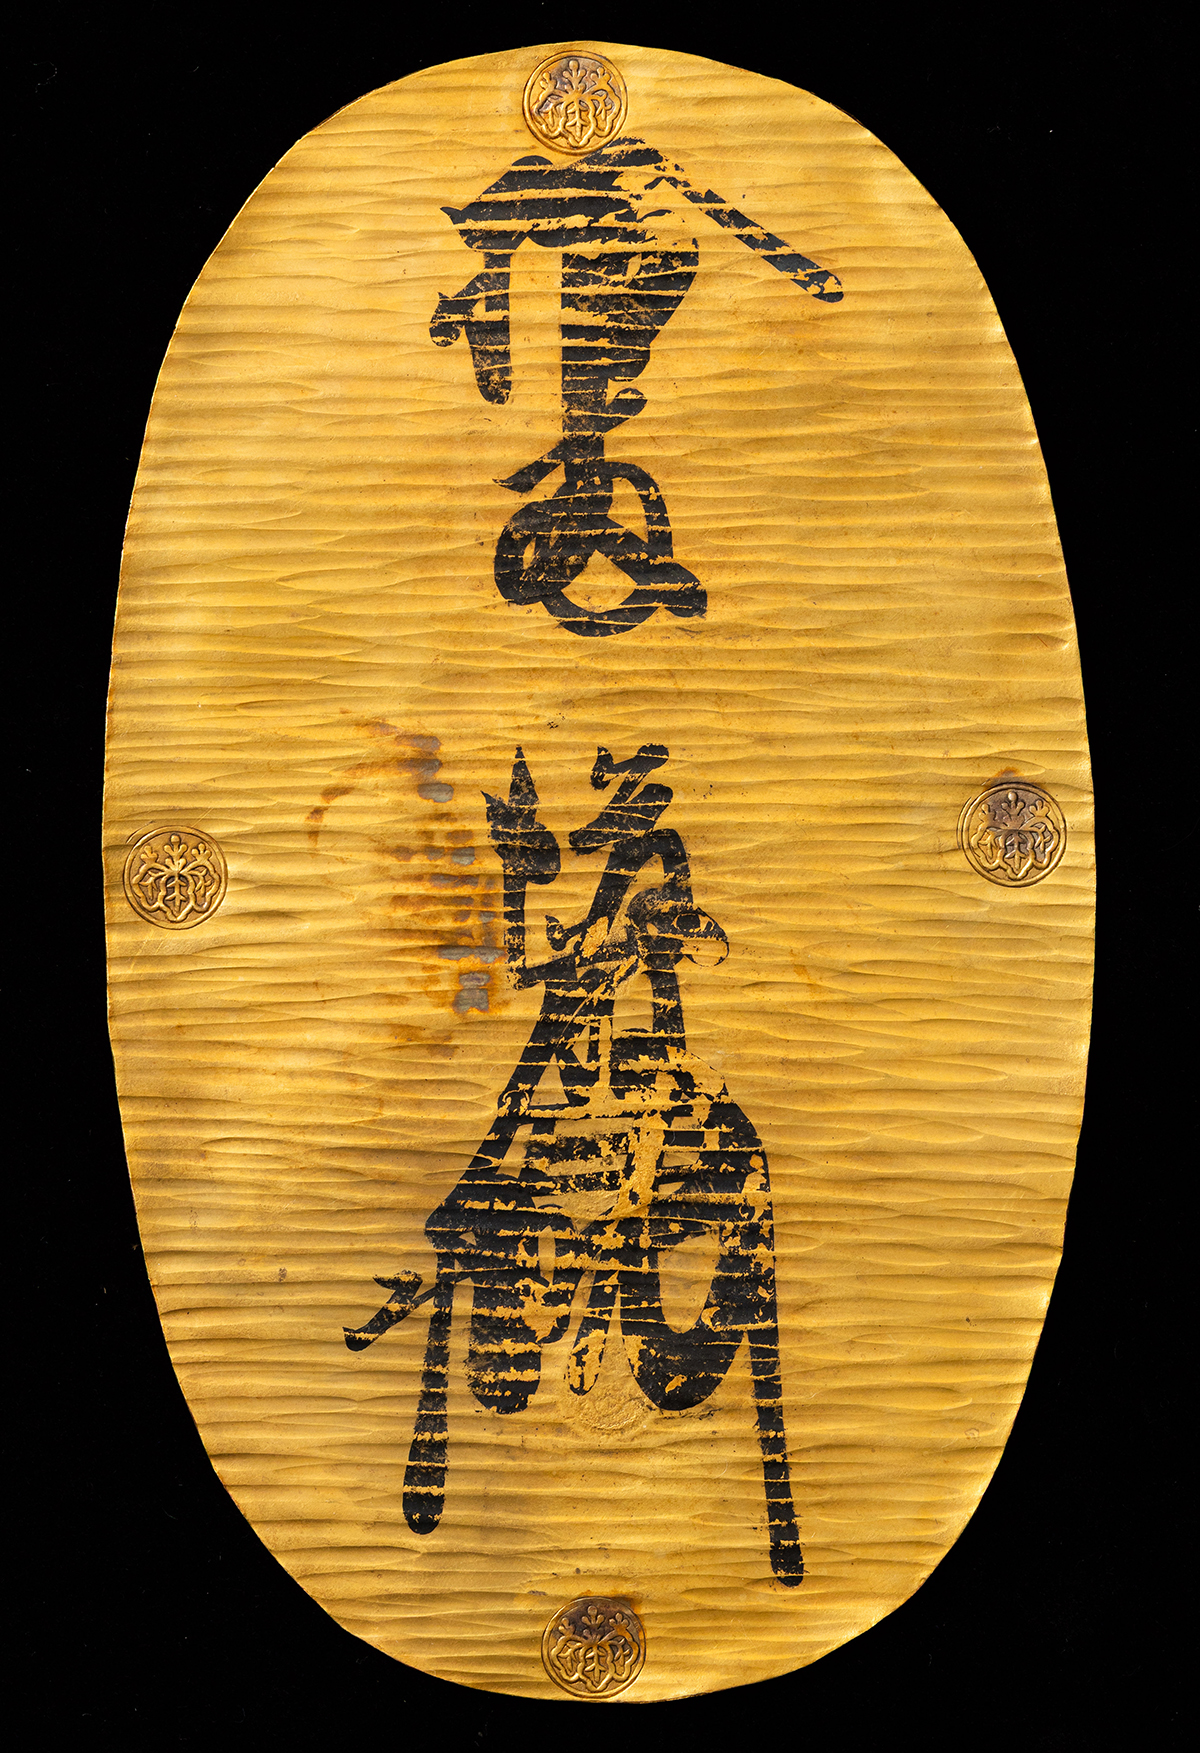 拾両
後藤